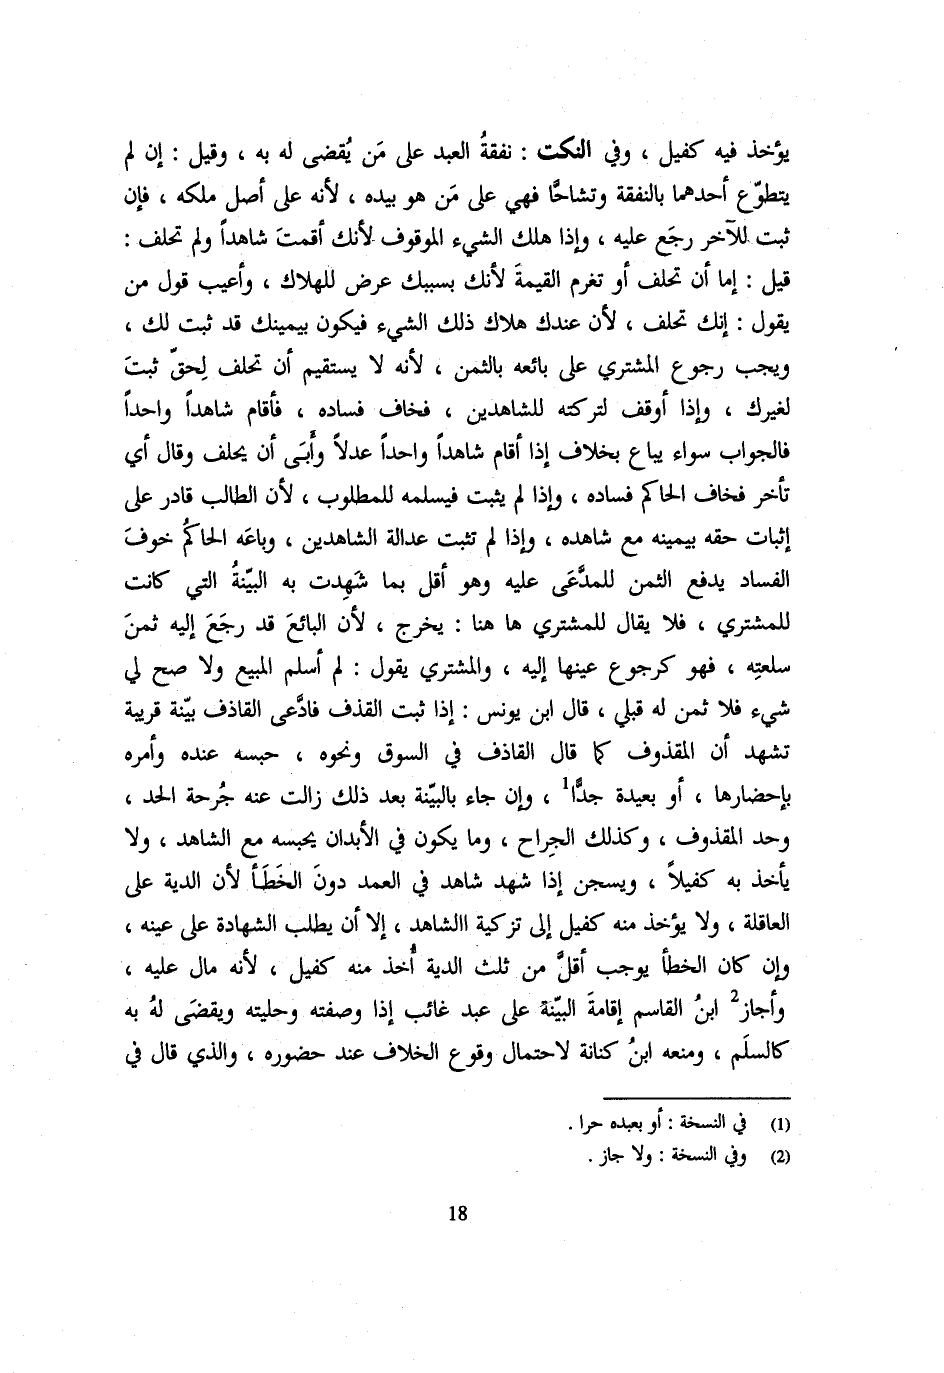 يؤخذ فيه كفيل ، وفي النكت : نفقةُ العبد على مَن يُقضى له به ، وقيل : إن لم
يتطوّع أحدهما بالنفقة وتشاحَّا فهي على مَن هو بيده ، لأنه على أصل ملكه ، فإن
ثبت للآخر رجَع عليه ، وإذا هلك الشيء الموقوف لأنك أقمتَ شاهداً ولم تحلف :
قيل : إما أن تحلف أو تغرم القيمةَ لأنك بسببك عرض للهلاك ، وأعيب قول من
يقول : إنك تحلف ، لأن عندك هلاك ذلك الشيء فيكون بيمينك قد ثبت لك ،
ويجب رجوع المشتري على بائعه بالثمن ، لأنه لا يستقيم أن تحلف لِحقّ ثبتَ
لغيرك ، وإذا أوقف لتركته للشاهدين ، فخاف فساده ، فأقام شاهداً واحداً
فالجواب سواء يباع بخلاف إذا أقام شاهداً واحداً عدلاً وأَبَى أن يحلف وقال أي
تأخر فخاف الحاكم فساده ، وإذا لم يثبت فيسلمه للمطلوب ، لأن الطالب قادر على
إثبات حقه بيمينه مع شاهده ، وإذا لم تثبت عدالة الشاهدين ، وباعَه الحاكمُ خوفَ
الفساد يدفع الثمن للمدَّعَى عليه وهو أقل بما شَهِدت به البيّنةُ التي كانت
للمشتري ، فلا يقال للمشتري ها هنا : يخرج ، لأن البائعَ قد رجَعَ إليه ثمنَ
سلعتِه ، فهو كرجوع عينها إليه ، والمشتري يقول : لم أسلم المبيع ولا صح لي
شيء فلا ثمن له قبلي ، قال ابن يونس : إذا ثبت القذف فادَّعى القاذف بيّنة قريبة
تشهد أن المقذوف كما قال القاذف في السوق ونحوه ، حبسه عنده وأمره
بإحضارها ، أو بعيدة جدًّا1 ، وإن جاء بالبيّنة بعد ذلك زالت عنه جُرحة الحد ،
وحد المقذوف ، وكذلك الجِراح ، وما يكون في الأبدان يحبسه مع الشاهد ، ولا
يأخذ به كفيلاً ، ويسجن إذا شهد شاهد في العمد دونَ الخَطَأ لأن الدية على
العاقلة ، ولا يؤخذ منه كفيل إلى تزكية االشاهد ، إلا أن يطلب الشهادة على عينه ،
وإن كان الخطأ يوجب أقلَّ من ثلث الدية أُخذ منه كفيل ، لأنه مال عليه ،
وأجاز2 ابنُ القاسم إقامةَ البيّنة على عبد غائب إذا وصفته وحليته ويقضَى لهُ به
كالسلَم ، ومنعه ابنُ كنانة لاحتمال وقوع الخلاف عند حضوره ، والذي قال في
(1) في النسخة : أو بعبده حرا .
(2) وفي النسخة : ولا جاز .
18